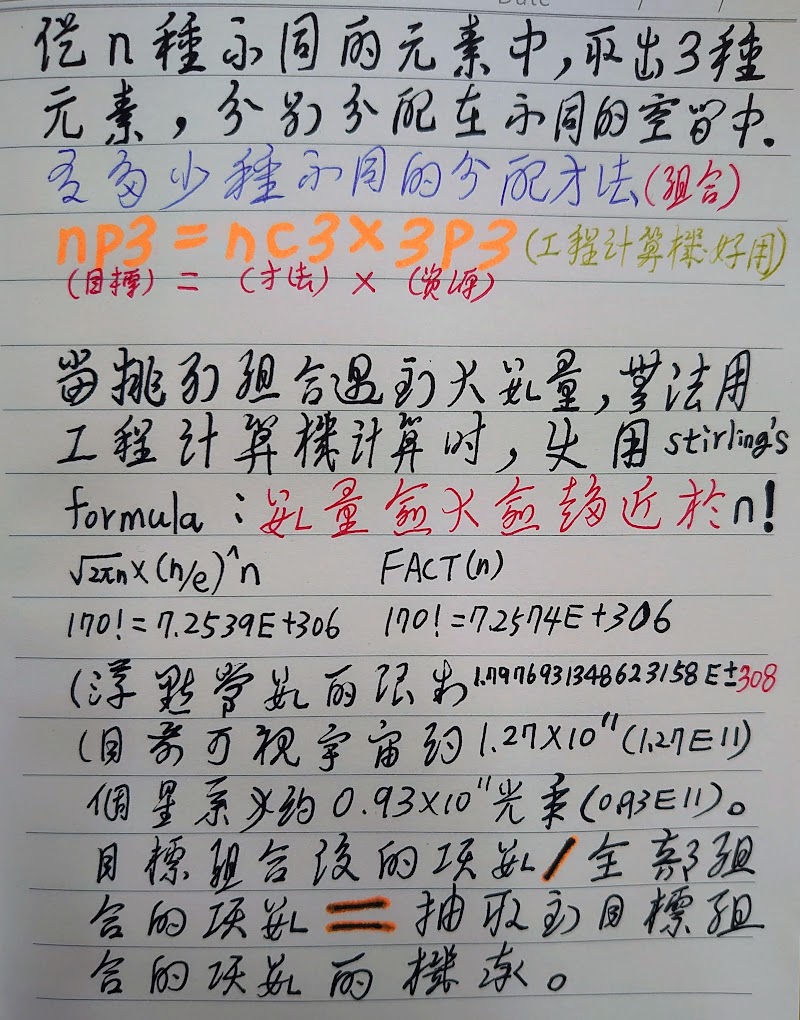 Date / /
從n種不同的元素中,取出3種
元素,分別分配在不同的空間中.
有多少種不同的分配方法(組合)
nP3=nC3×3P3(工程計算機好用)
(目標)=(方法)×(資源)
當排列組合遇到大數量,無法用
工程計算機計算時,使用stirling's
formula:數量愈大愈趨近於n!
√2πn×(n/e)^n FACT(n)
170!=7.2539E+306 170!=7.2574E+306
(浮點常數的限制1.7976931348623158E±308
(目前可視宇宙約1.27×10¹¹(1.27E11)
個星系 約0.93×10¹¹光年(0.93E11)。
目標組合後的項數/全部組
合的項數=抽取到目標組
合的項數的機率。